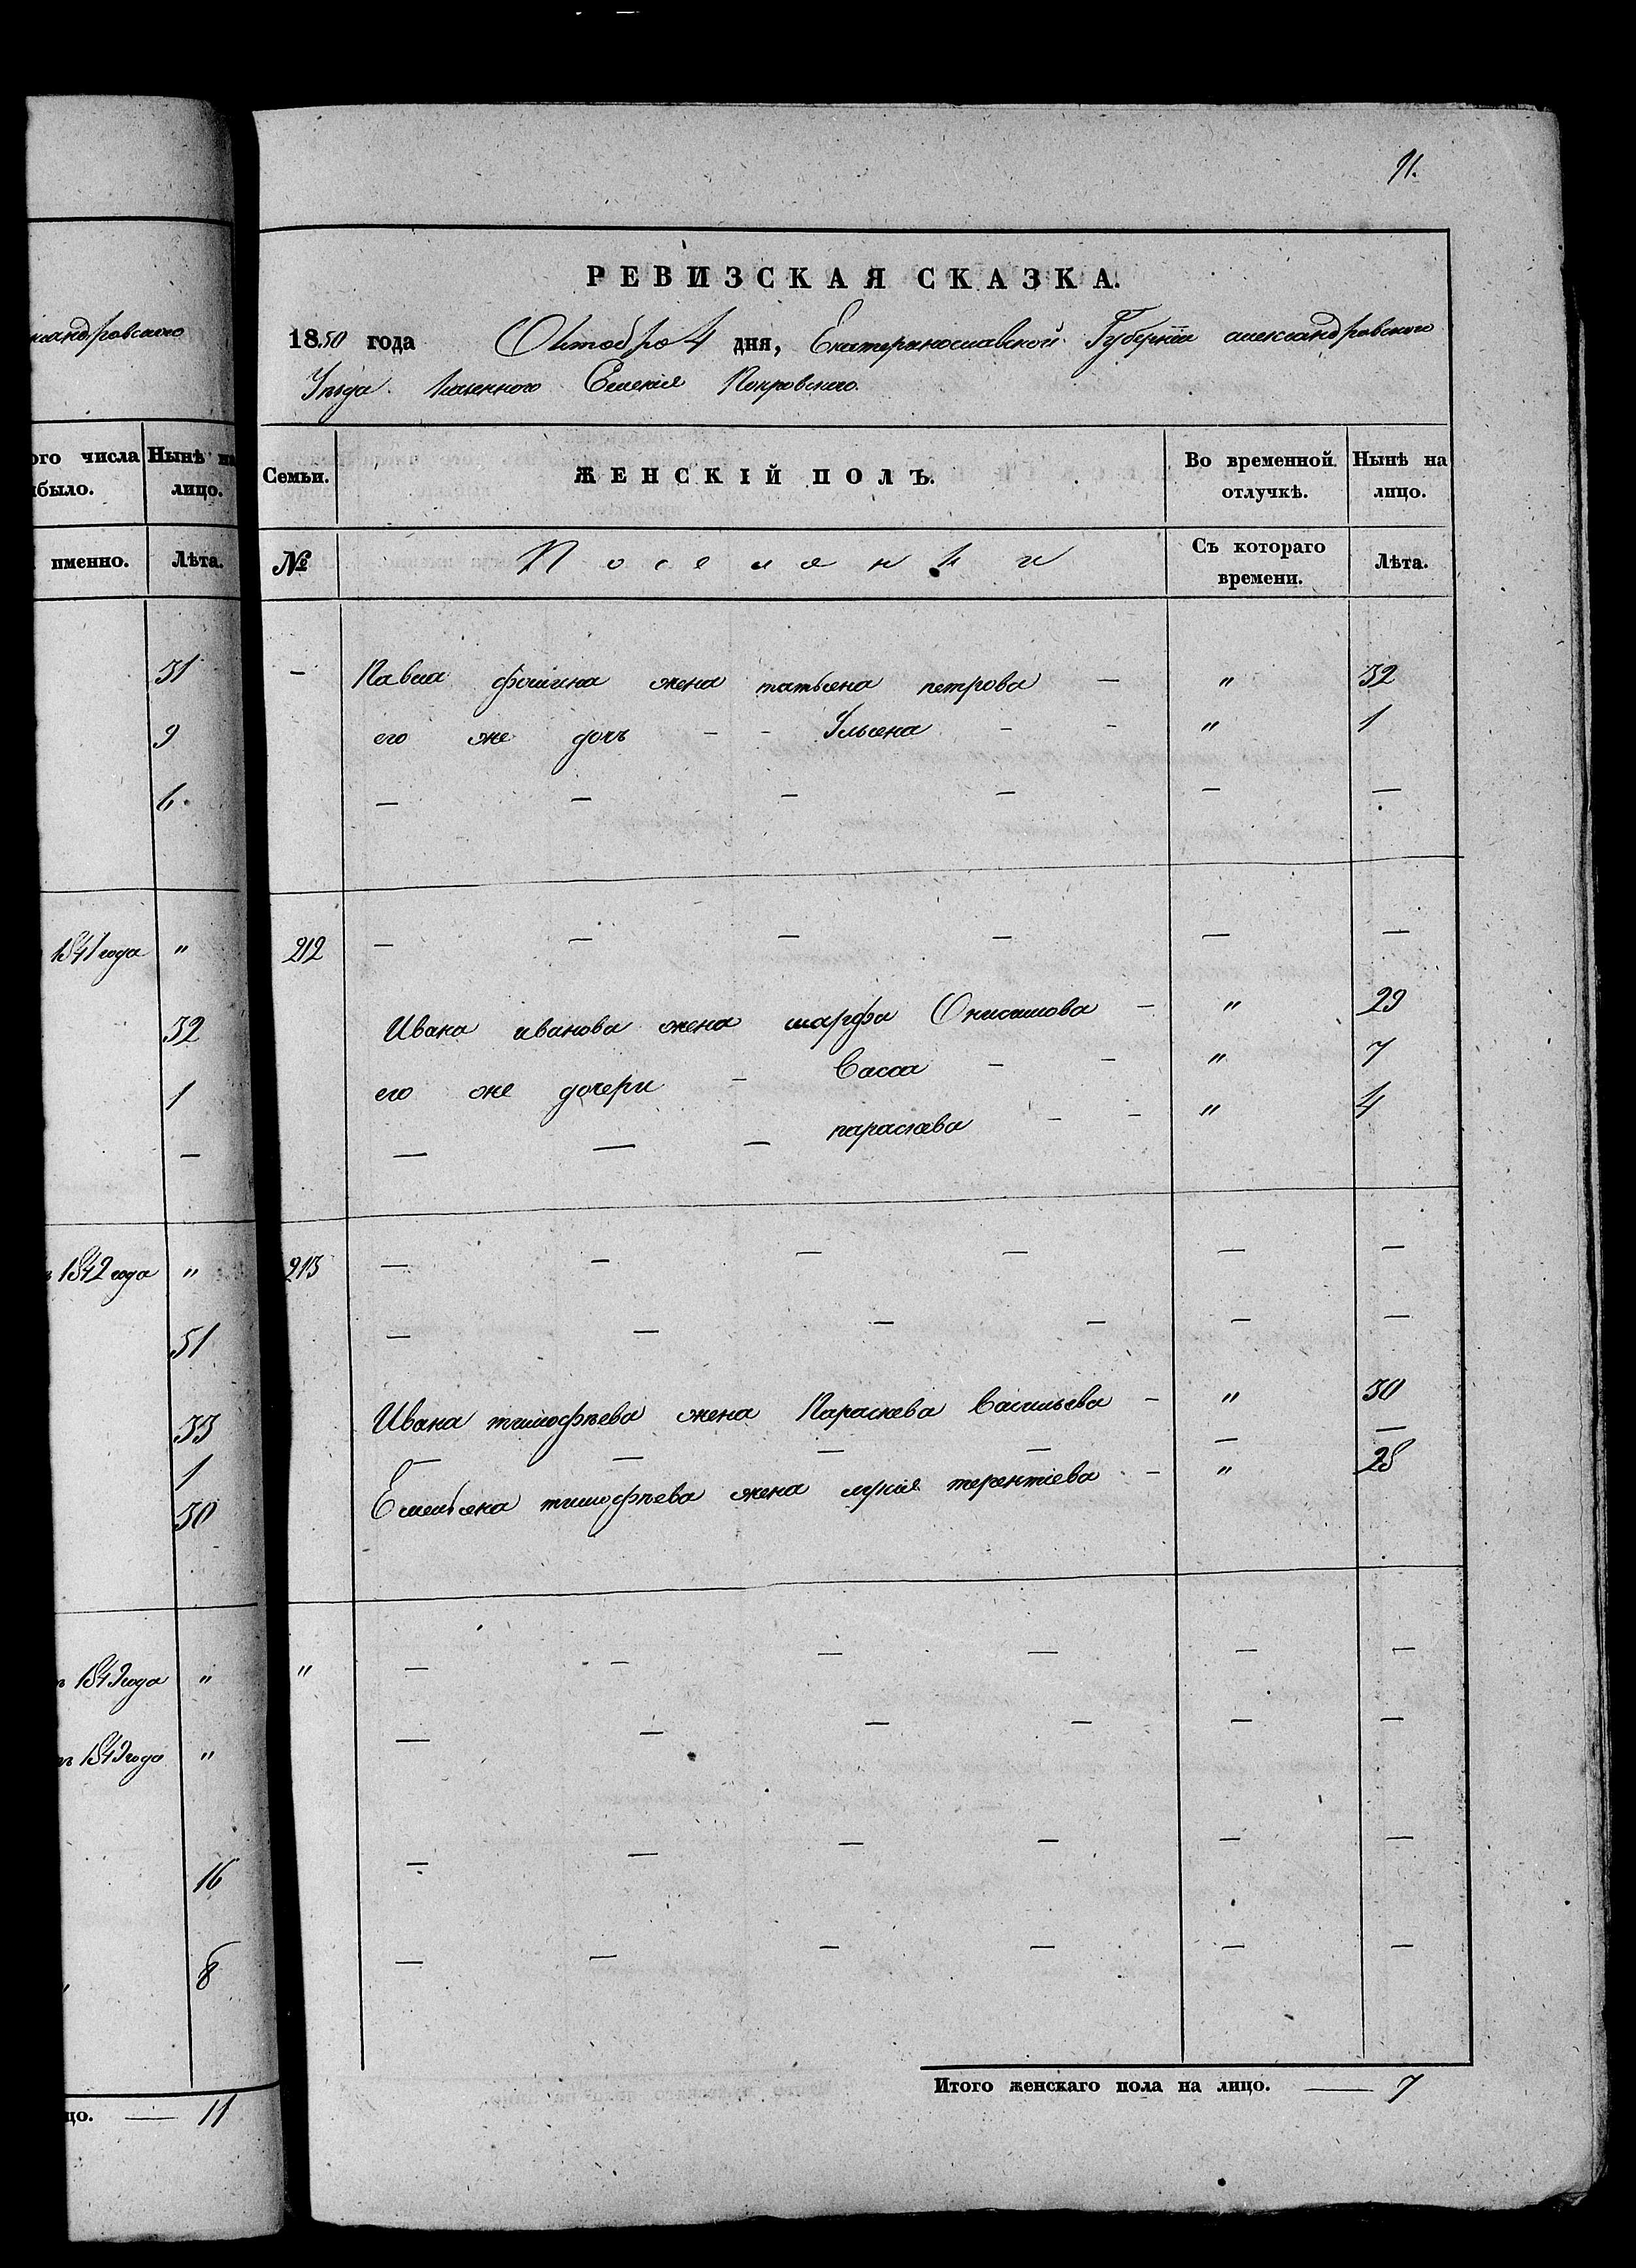 91.
кандровского
РЕВИЗСКАЯ СКАЗКА.
1850 года Октобря 4 дня, Екатеринославской Губерніи александровского
Уѣзда казенного Селенія Покровского.
ого числа
было.
Нынѣ на
лицо.
именно.
Лѣта.
Семьи.
ЖЕНСКІЙ ПОЛЪ.
Во временной
отлучкѣ.
Нынѣ на
лицо.
№
Поселянки
Съ котораго
времени.
Лѣта.
31
9
6
1841 года "
32
1
—
1842 года "
51
33
1
30
1849 года "
1849 года "
16
8
цо. — 11
— Павла фомина жена татьяна петрова — " 32
его же дочь - - Ульяна - - " 1
— — — — — —
212 — — — — — —
Ивана иванова жена марфа Онисимова — " 29
его же дочери - Васса - - " 7
— — — параскева - - " 4
213 — — — — — —
— — — — — —
Ивана тимофѣева жена Параскева Васильева - " 30
— — — — — —
Емельяна тимофѣева жена лукія терентіева - " 28
" — — — — — —
— — — — — —
— — — — — —
— — — — — —
Итого женскаго пола на лицо. — 7